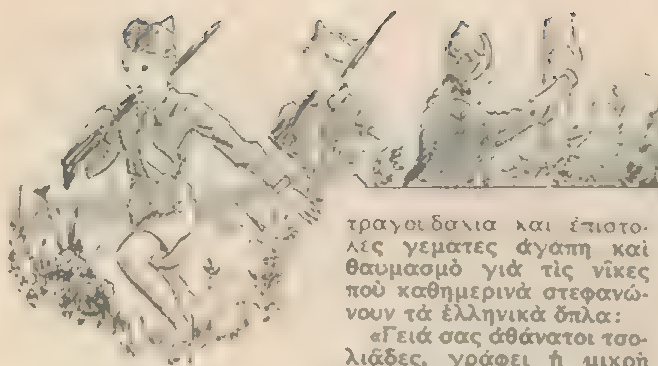 τραγουδάκια καὶ ἐπιστο-
λὲς γεματες ἀγαπη καὶ
θαυμασμὸ γιὰ τὶς νῖκες
ποὺ καθημερινὰ στεφανώ-
νουν τὰ ἑλληνικὰ ὅπλα:
«Γειά σας ἀθάνατοι τσο-
λιάδες, γράφει ἡ μικρὴ